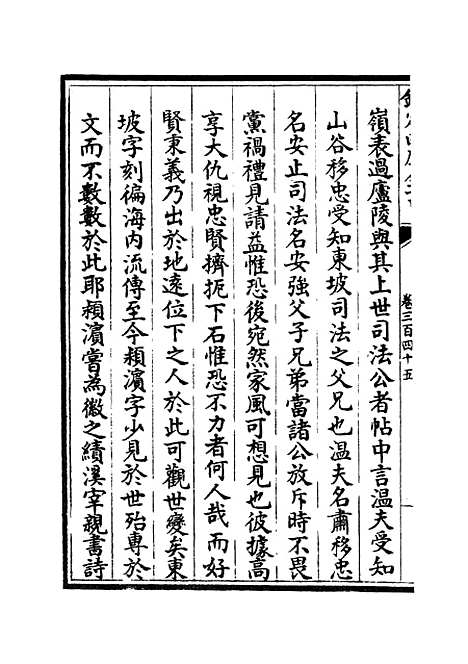 嶺表過廬陵與其上世司法公者帖中言溫夫受知
山谷移忠受知東坡司法之父兄也溫夫名肅移忠
名安止司法名安強父子兄弟當諸公放斥時不畏
黨禍禮見請益惟恐後宛然家風可想見也彼據高
享大仇視忠賢擠扼下石惟恐不力者何人哉而好
賢秉義乃出於地遠位下之人於此可觀世變矣東
坡字刻徧海内流傳至今潁濵字少見於世殆專於
文而不數數於此耶潁濵嘗為徽之績溪宰親書詩
卷三百四十五